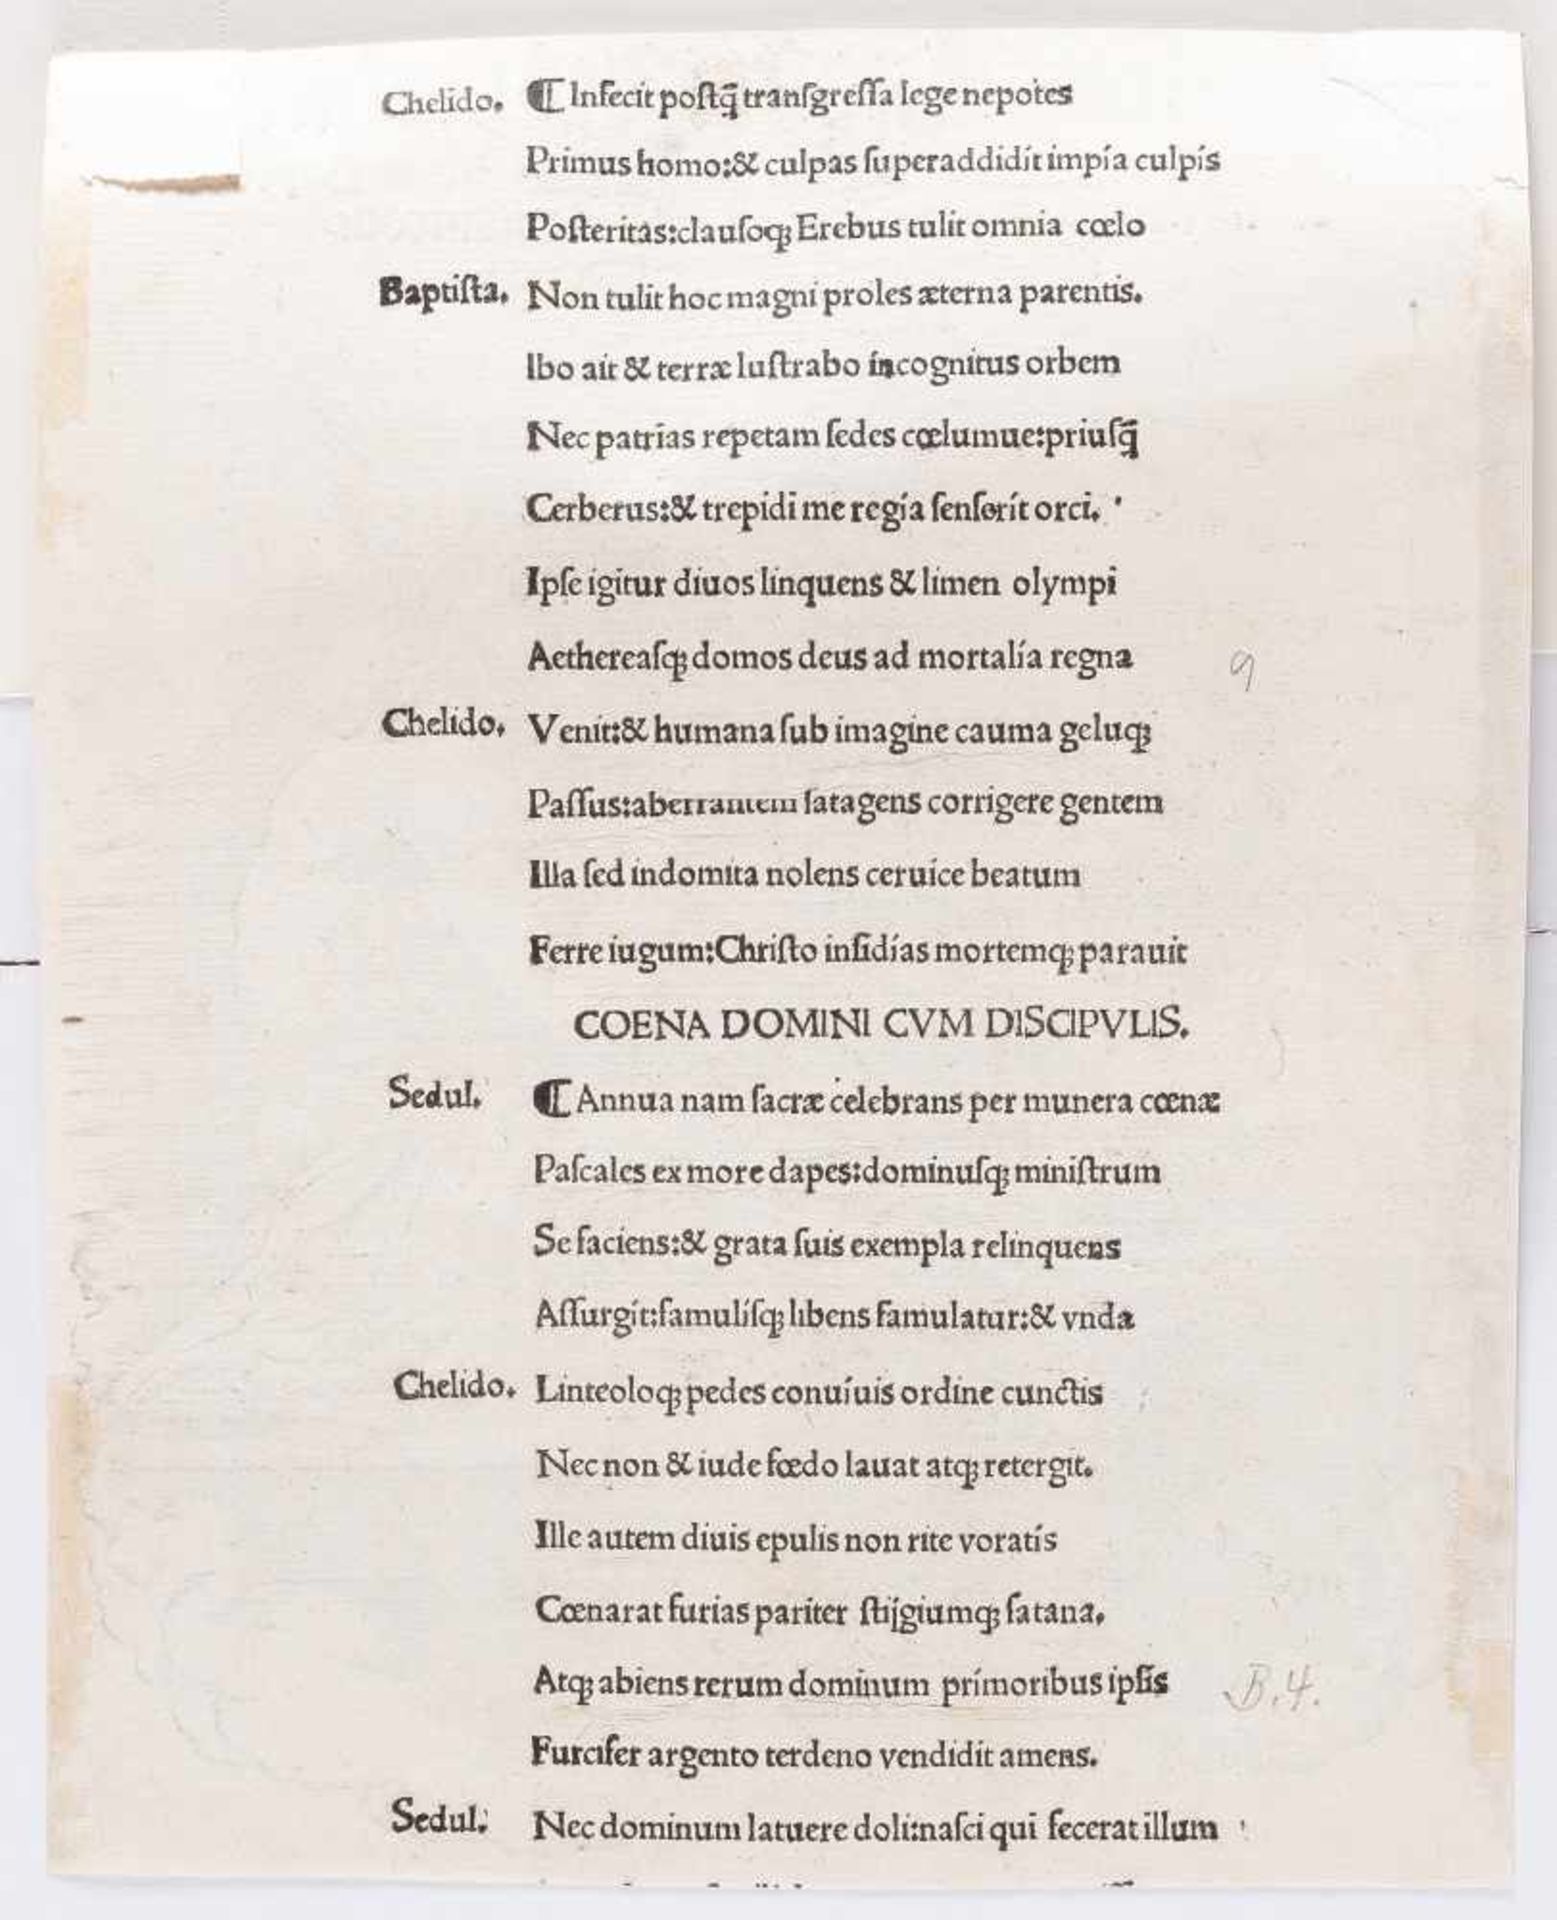 Chelido. ¶ Infecit poſtq̃ tranſgreſſa lege nepotes
Primus homo:& culpas ſuperaddidit impia culpis
Poſteritas:clauſoq; Erebus tulit omnia cœlo
Baptiſta. Non tulit hoc magni proles æterna parentis.
Ibo ait & terræ luſtrabo incognitus orbem
Nec patrias repetam ſedes cœlumue:priuſq̃
Cerberus:& trepidi me regia ſenſerit orci.
Ipſe igitur diuos linquens & limen olympi
Aethereaſq; domos deus ad mortalia regna
9
Chelido. Venit:& humana ſub imagine cauma geluq;
Paſſus:aberrantem ſatagens corrigere gentem
Illa ſed indomita nolens ceruice beatum
Ferre iugum:Chriſto inſidias mortemq; parauit
COENA DOMINI CVM DISCIPVLIS.
Sedul. ¶ Annua nam ſacræ celebrans per munera cœnæ
Paſcales ex more dapes:dominuſq; miniſtrum
Se faciens:& grata ſuis exempla relinquens
Aſſurgit:famuliſq; libens famulatur:& vnda
Chelido. Linteoloq; pedes conuiuis ordine cunctis
Nec non & iude fœdo lauat atq; retergit.
Ille autem diuis epulis non rite voratis
Cœnarat furias pariter ſtijgiumq; ſatana.
Atq; abiens rerum dominum primoribus ipſis
B.4.
Furcifer argento terdeno vendidit amens.
Sedul. Nec dominum latuere doli:naſci qui fecerat illum